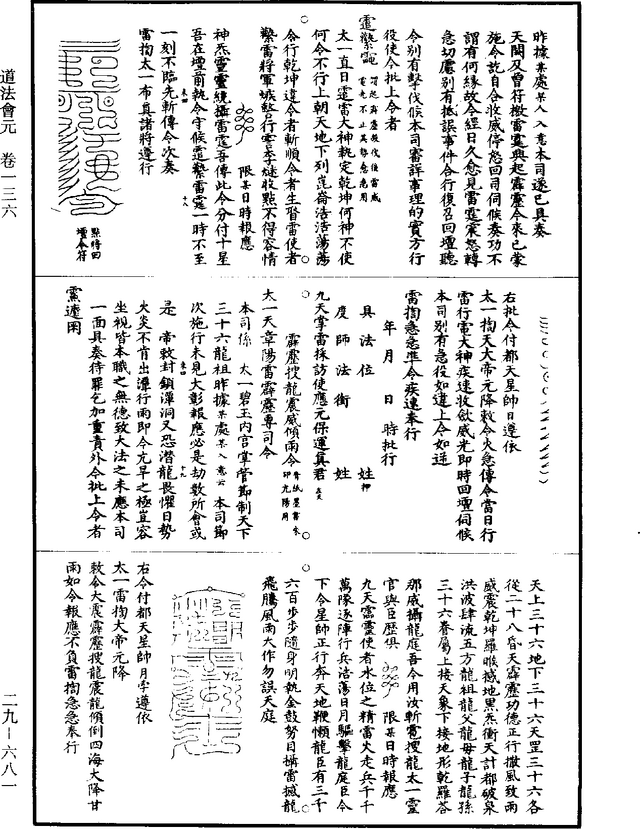 昨據某處某人入意本司遂已具奏
天闕及曾符檄雷霆興起霹靂今來已蒙
施令訖自合收威停怒回司伺候奏功不
謂有何緣故今經日久愈見雷霆震怒轉
急切慮別有抵誤事件合行復召回壇聽
令別有擊伐候本司審詳事理的實方行
役使今批上令者
太一真日霆雷大神執定乾坤何神不使
何令不行上朝天地下列崑崙浩浩蕩蕩
令行乾坤違令者斬順令者生
神炁靈靈統攝雷霆吾傳此令分付十星
限某日時報應
吾在壇前執令守候
一時不至
一刻不臨先斬傳令次奏
雷掏太一布真諸將遵行
點待回
壇令符
右批令付都天星帥日遵依
太一掏天大帝元降敕令火急傳令當日行
雷行電大神疾速收歛威光即時回壇伺候
本司別有急役如違上令如違
雷掏急急準令疾速奉行
年 月 日 時批行
具法位 姓 押
度師法銜 姓
九天掌雷採訪使應元保運真君
霹靂搜龍震威傾雨令
太一天章陽雷霹靂專司令
本司係 太一碧玉內宮掌管節制天下
三十六龍祖昨據某處某人入意云 本司節
次施行未見大彰報應必是劫數所會或
是 帝敕封鎖潭洞又恐潛龍畏懼日勢
火炎不肯出潭行雨即今亢旱之極豈容
坐視皆本職之無德致大法之未應本司
一面具奏待罪乞加重責外令批上令者
天上三十六地下三十六天罡三十六各
從二十八昏天霹靂功德正行撒風致雨
威震乾坤羅睺撼地黑炁衝天計都破梟
洪波肆流五方龍祖龍父龍母龍子龍孫
三十六眷屬上接天象下接地形乾羅荅
那威攝龍庭吾今用汝斬電搜龍太一靈
官與臣歷俱 限某日時報應
九天雷霆使者水位之精雷火走兵千千
萬隊逐陣行兵浩蕩日月驅擊龍庭臣今
下令星帥正行奔天地鞭懶龍臣有三千
六百步步隨身明執金鼓努目擒雷撼龍
飛騰風雨大作勿誤天庭
右令付都天星帥月孛遵依
太一雷掏大帝元降
敕令大震霹靂搜龍震龍傾倒四海大降甘
雨如令報應不負雷掏急急奉行
道法會元 卷一三六
二九－六八一